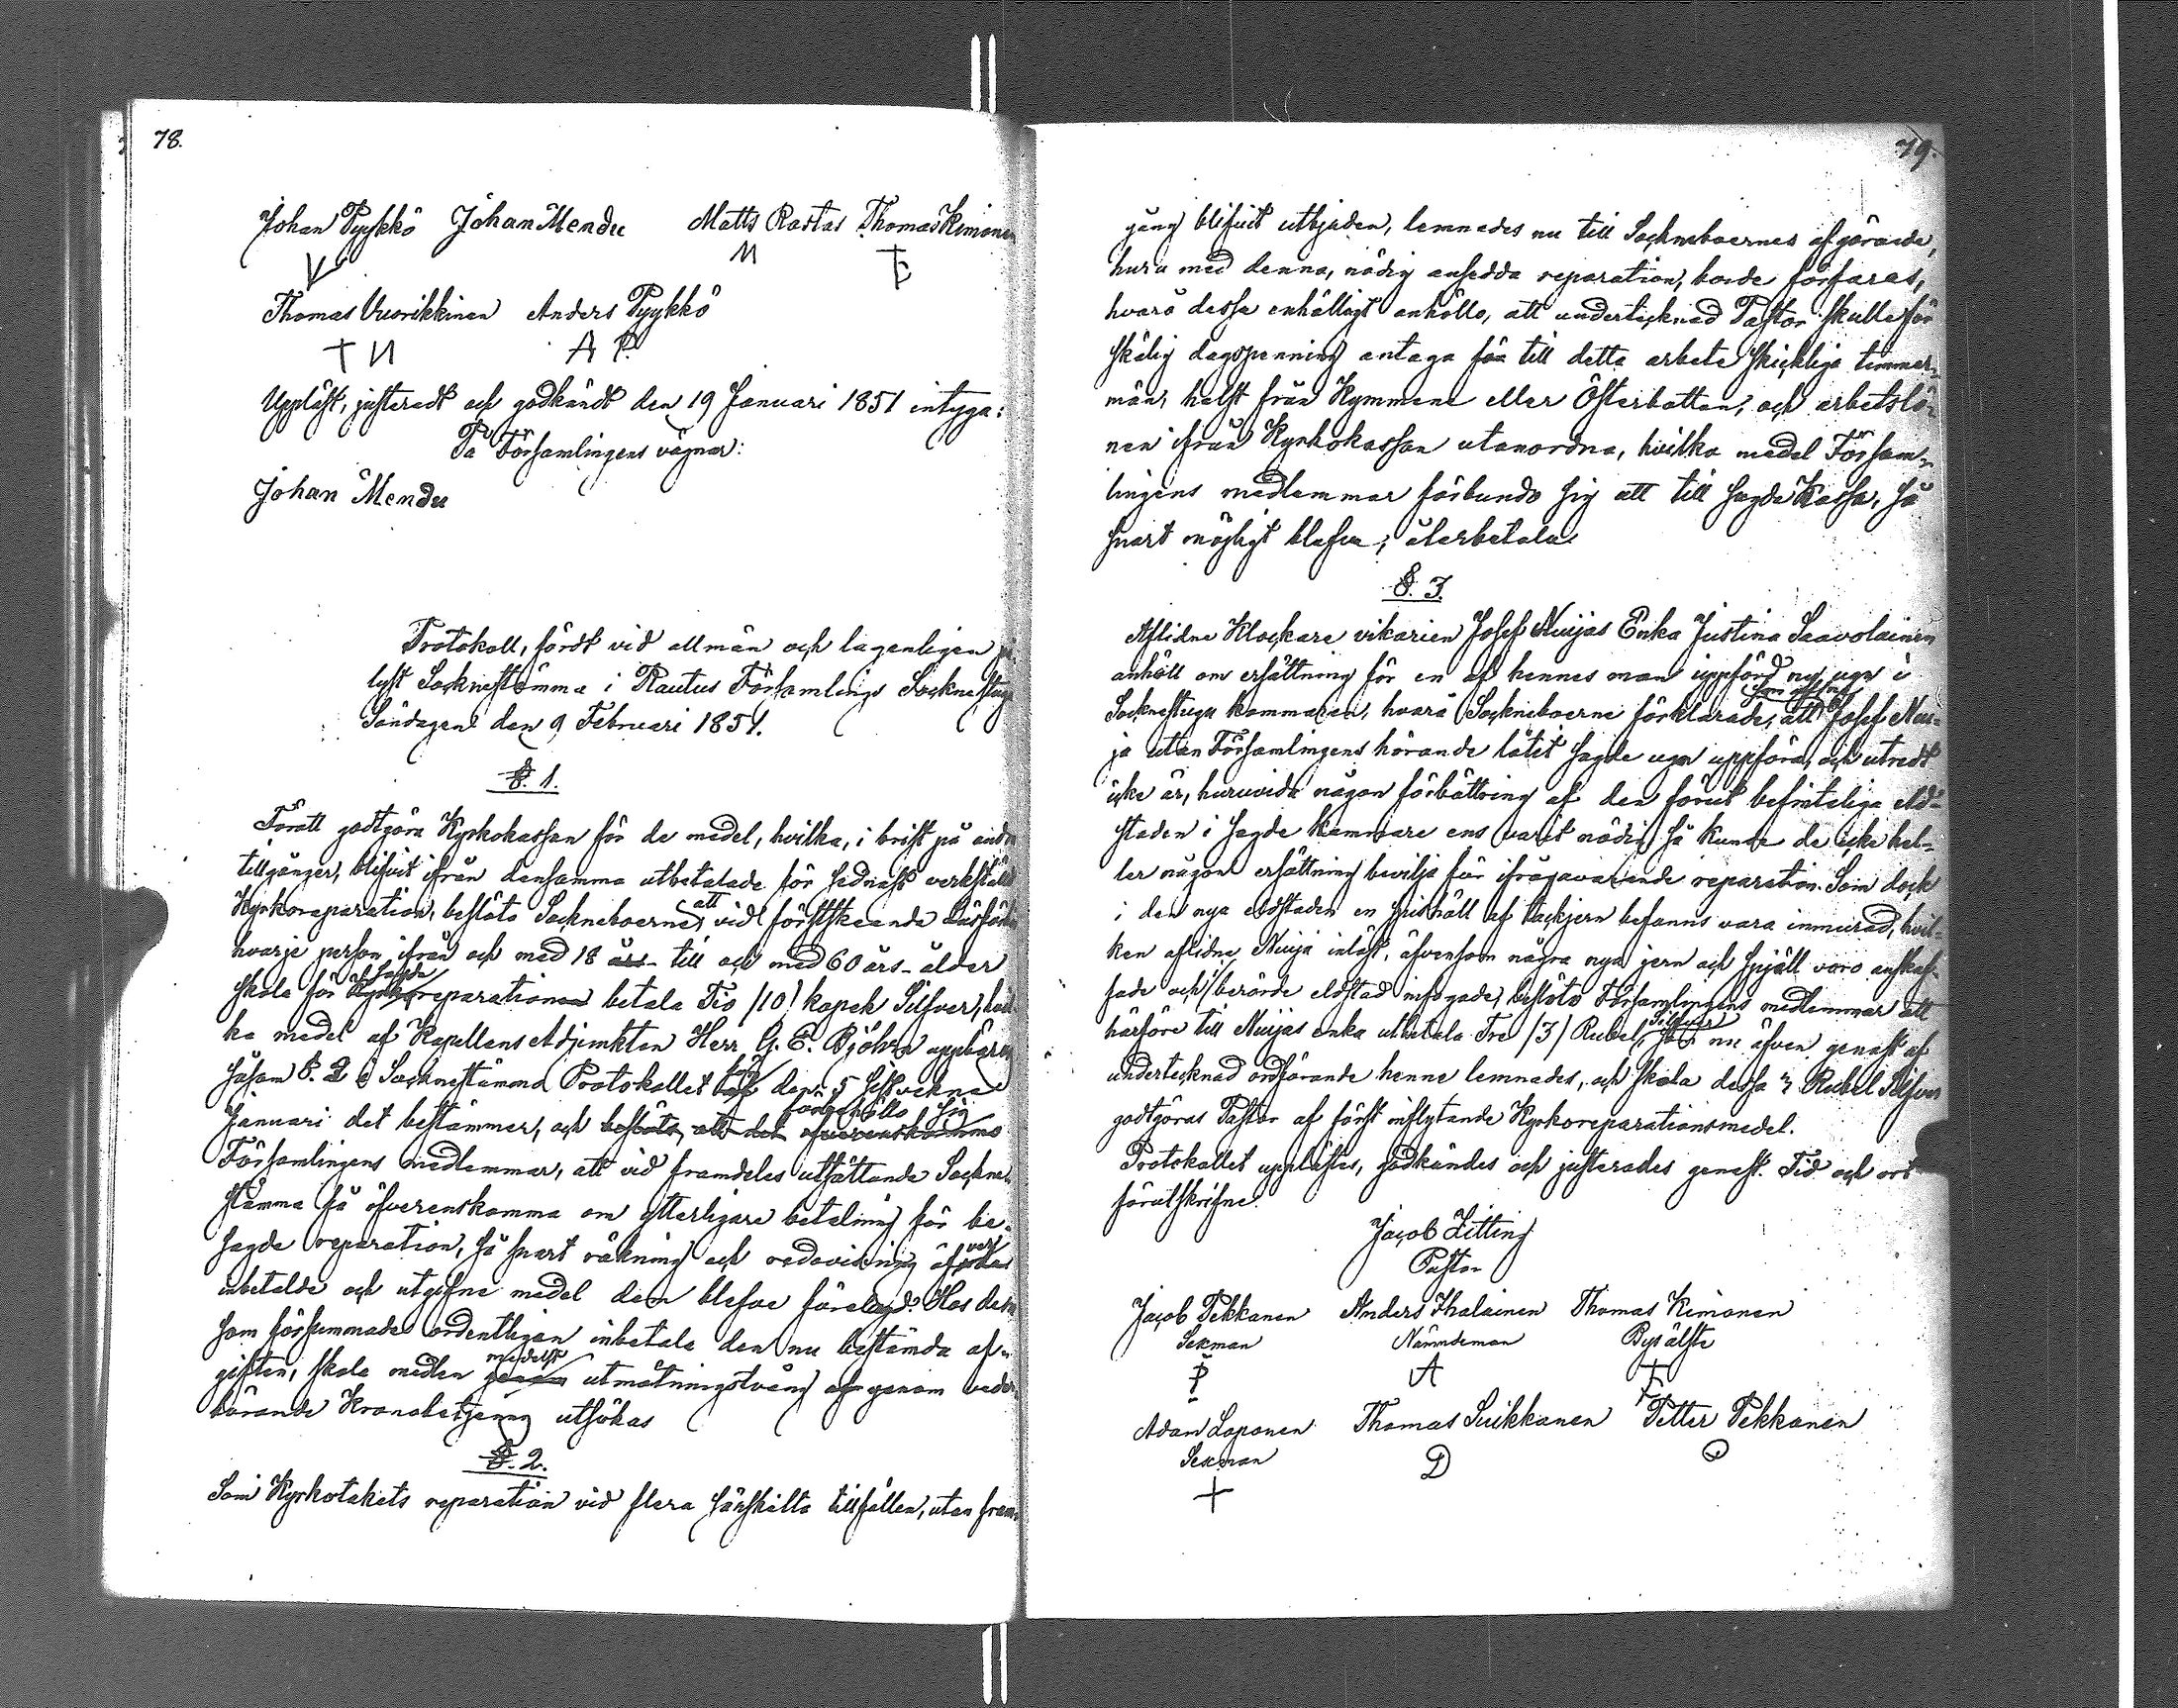 78.
Johan Pyykkö Johan Mendu Matts Rastas Thomas Kimonen
M
Thomas Vuorikkinen Anders Pyykkö
A P.
Uppläst, justeradt och godkändt den 19 Januari 1851 intyga:
På Församlingens vägnar:
Johan Mendu
Protokoll, fördt vid allmän och lagenligen
lyst Sockenstämma i Rautus Församlings Sockenstuga
Söndagen den 9 Februari 1851.
§. 1.
Föratt godtgöra Kyrkokassan för de medel, hvilka, i brist på andra
tillgångar, blifvit ifrån densamma utbetalade för sednast verkställd
Kyrkoreparation, beslöto Sockneboerne, att vid förstskeende Läsförhör
hvarje person ifrån och med 18 års till och med 60 års-ålder
skola för besagde reparation betala Tio /10/ kopek Silfver, hvil-
ka medel af Kapellans Adjunkten Herr G. E. Björkn uppbäras
såsom §. 2 i Sockenstämmo Protokollet af den 5 sistvekne
Januari det bestämmer, och förbehöllo sig
Församlingens medlemmar, att vid framdeles utsättande Sockne-
stämma få öfverenskomma om ytterligare betalning för be-
sagde reparation, så snart räkning och redovisning öfver
inbetalde och utgifne medel dem blefve förelagd. Hos dem
som försummade ordentligen inbetala den nu bestämda af-
giften, skola medlen medelst utmätningstvång genom veder-
börande Kronobetjening utsökas
§. 2.
Som Kyrkotakets reparation vid flera särskilta tillfällen, utan fram-
79.
gång blifvit utbjuden, lemnades nu till Sockneboernes afgörande,
huru med denna, nödig ansedda reparation, borde förfaras,
hvarå dessa enhälligt anhöllo, att undertecknad Pastor skulle för
skälig dagspenning antaga till detta arbete skickliga timmer-
män, helst från Kymmene eller Österbotten, och arbetslö-
nen ifrån Kyrkokassan utanordna, hvilka medel Försam-
lingens medlemmar förbundo sig att till sagde Kassa, så
snart möjligt blefve, återbetala.
§. 3.
Aflidne Klockare vikarien Josef Nuijas Enka Justina Saavolainen
anhöll om ersättning för en af hennes man uppförd ny ugn i
Sockenstugu kammaren, hvarå Sockneboerne förklarade, att som aflidne Josef Nui-
ja utan Församlingens hörande låtit sagde ugn uppföra, och utredt
icke är, huruvida någon förbättring af den förut befinteliga eld-
staden i sagde kammare ens varit nödig så kunde de icke hel-
ler någon ersättning bevilja för ifrågavarande reparation. Som dock
i den nya eldstaden en spishäll af tackjern befanns vara inmurad, hvil-
ken aflidne Nuija inlöst, äfvensom några nya jern och spjäll voro anskaf-
fade och i berörde eldstad infogade, beslöto Församlingens medlemmar att
härföre till Nuijas enka utbetala Tre /3/ Rubel Silfver, som nu äfven genast af
undertecknad ordförande henne lemnades, och skola dessa 3 Rubel Silfver
godtgöras Pastor af först inflytande Kyrkoreparationsmedel.
Protokollet upplästes, godkändes och justerades genast. Tid och ort
förutskrifne.
Jacob Zitting
Pastor
Jacob Pekkanen Anders Ihalainen Thomas Kimonen
Sexman Nämndeman Byälste
P A
Adam Loponen Thomas Suikkanen Petter Pekkanen
Sexman D